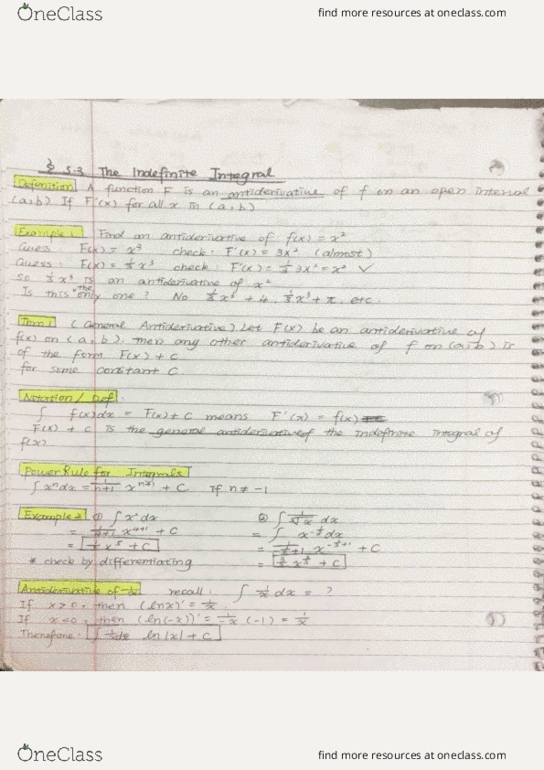 OneClass find more resources at oneclass.com
§ 5.3 The Indefinite Integral
Definition A function F is an antiderivative of f on an open interval
(a,b) If F'(x) for all x in (a,b)
Example 1 Find an antiderivative of f(x) = x²
Guess F(x) = x³ check: F'(x) = 3x² (almost)
Guess: F(x) = ⅓x³ check: F'(x) = ⅓3x² = x² ✓
So ⅓x³ is an antiderivative of x²
Is this the only one? No ⅓x³ + 4, ⅓x³ + π, etc.
Thm 1 (General Antiderivative) Let F(x) be an antiderivative of
f(x) on (a,b), then any other antiderivative of f on (a,b) is
of the form F(x) + C
for some constant C
Notation / Def
∫ f(x)dx = F(x) + C means F'(x) = f(x)
F(x) + C is the general antiderivative of the indefinite integral of
f(x)
Power Rule for Integrals
∫xⁿdx = 1/(n+1) xⁿ⁺¹ + C If n ≠ -1
Example 2 ① ∫x⁴dx ②
= 1/(4+1) x⁴⁺¹ + C
= ⅕x⁵ + C
* check by differentiating
Antiderivative of 1/x recall: ∫ 1/x dx = ?
If x>0, then (lnx)' = 1/x
If x<0, then (ln(-x))' = 1/-x (-1) = 1/x
Therefore: ln|x| + C
OneClass find more resources at oneclass.com